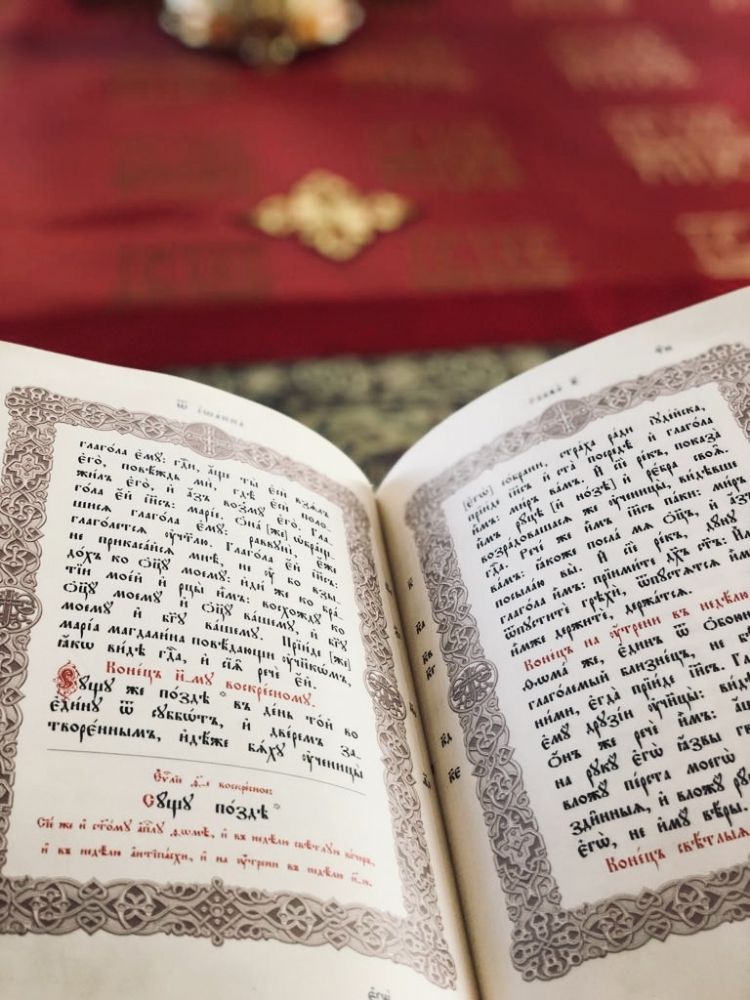 Ѿ іѡанна
глаго́ла є҆мꙋ̀: гдⷭ҇и, а҆́ще ты̀ є҆сѝ взѧ́лъ
є҆го̀, повѣ́ждь мѝ, гдѣ̀ є҆сѝ поло-
жи́лъ є҆го̀, и҆ а҆́зъ возмꙋ̀ є҆го̀. Гла-
го́ла є҆́й і҆и҃съ: марі́е. Ѻ҆на́ [же] ѡ҆бра́щ-
шисѧ глаго́ла є҆мꙋ̀: раввꙋнѝ, є҆́же
глаго́летсѧ ᲂу҆чт҃лю. Глаго́ла є҆́й і҆и҃съ:
не прикаса́йсѧ мнѣ̀, не ᲂу҆̀ бо взы-
до́хъ ко ѻ҆ц҃ꙋ̀ моемꙋ̀: и҆ди́ же ко бра́-
тїи мое́й и҆ рцы̀ и҆̀мъ: восхождꙋ̀ ко
ѻ҆ц҃ꙋ̀ моемꙋ̀ и҆ ѻ҆ц҃ꙋ̀ ва́шемꙋ, и҆ бг҃ꙋ
моемꙋ̀ и҆ бг҃ꙋ ва́шемꙋ. Прїи́де [же]
марі́а магдали́на повѣ́дающи ᲂу҆чн҃кѡ́мъ,
ꙗ҆́кѡ ви́дѣ гдⷭ҇а, и҆ сїѧ̑ речѐ є҆́й.
Коне́цъ и҃-мꙋ воскре́сномꙋ.
Сꙋ́щꙋ же по́здѣ въ де́нь то́й во
є҆ди́нꙋ ѿ сꙋббѡ́тъ, и҆ две́ремъ за-
творє́ннымъ, и҆дѣ́же бѧ́хꙋ ᲂу҆чн҃цы̀
Є҆ѵⷢ҇лїе д҃-є воскре́сное:
Сꙋ́щꙋ по́здѣ
Сїѐ же и҆ ст҃о́мꙋ а҆пⷭ҇лꙋ ѳѡмѣ̀, и҆ въ недѣ́лю свѣ́тлꙋю ве́чера,
и҆ въ недѣ́лю а҆нтїпа́схи, и҆ на ᲂу҆́трени въ недѣ́лю
Глава̀ к҃
[є҆гѡ̀] со́брани, стра́ха ра́ди і҆ꙋде́йска,
прїи́де і҆и҃съ и҆ ста̀ посредѣ̀ и҆ глаго́ла
и҆̀мъ: ми́ръ ва́мъ. И҆ сїѐ ре́къ, показа̀
и҆̀мъ рꙋ́цѣ [и҆ но́зѣ] и҆ ре́бра своѧ̑.
возра́довашасѧ же ᲂу҆чн҃цы̀, ви́дѣвше
гдⷭ҇а. Рече́ же и҆̀мъ і҆и҃съ па́ки: ми́ръ
ва́мъ: ꙗ҆́коже посла́ мѧ ѻ҆ц҃ъ, и҆ а҆́зъ
посыла́ю вы̀. И҆ сїѐ ре́къ, дꙋ́нꙋ
глаго́ла и҆̀мъ: прїими́те дх҃ъ ст҃ъ:
ѿпꙋ́стите грѣхѝ, ѿпꙋ́стѧтсѧ
и҆̀мже держитѐ, держа́тсѧ.
Коне́цъ на ᲂу҆́трени въ недѣ́лю
Ѳѡма́ же, є҆ди́нъ ѿ
глаго́лемый близне́цъ, не
ни́ми, є҆гда̀ прїи́де і҆и҃съ.
є҆мꙋ̀ дрꙋзі́и ᲂу҆чн҃цы̀:
Ѻ҆́нъ же речѐ и҆̀мъ:
на рꙋкꙋ̀ є҆гѡ̀ ꙗ҆́звы
вложꙋ̀ пе́рста моегѡ̀
ѕди̑нныѧ, и҆ вложꙋ̀
є҆гѡ̀, не и҆мꙋ̀ вѣ́ры.
Коне́цъ свѣ́тлыѧ
к҃а
к҃в
к҃г
к҃д
к҃є